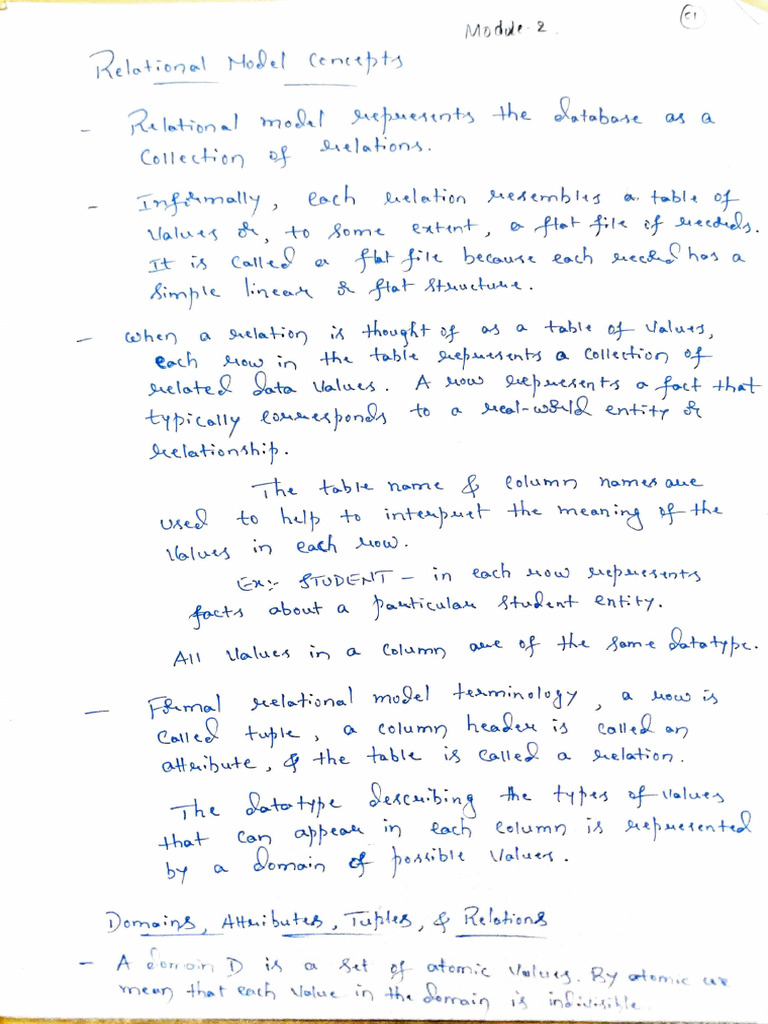 Module-2
51
Relational Model Concepts
- Relational model represents the database as a
collection of relations.
- Informally, each relation resembles a table of
values or, to some extent, a flat file of records.
It is called a flat file because each record has a
simple linear or flat structure.
- When a relation is thought of as a table of values,
each row in the table represents a collection of
related data values. A row represents a fact that
typically corresponds to a real-world entity or
relationship.
The table name & column names are
used to help to interpret the meaning of the
values in each row.
Ex:- STUDENT - in each row represents
facts about a particular student entity.
All values in a column are of the same datatype.
- Formal relational model terminology, a row is
called tuple, a column header is called an
attribute, & the table is called a relation.
The datatype describing the types of values
that can appear in each column is represented
by a domain of possible values.
Domains, Attributes, Tuples, & Relations
- A domain D is a set of atomic values. By atomic we
mean that each value in the domain is indivisible.